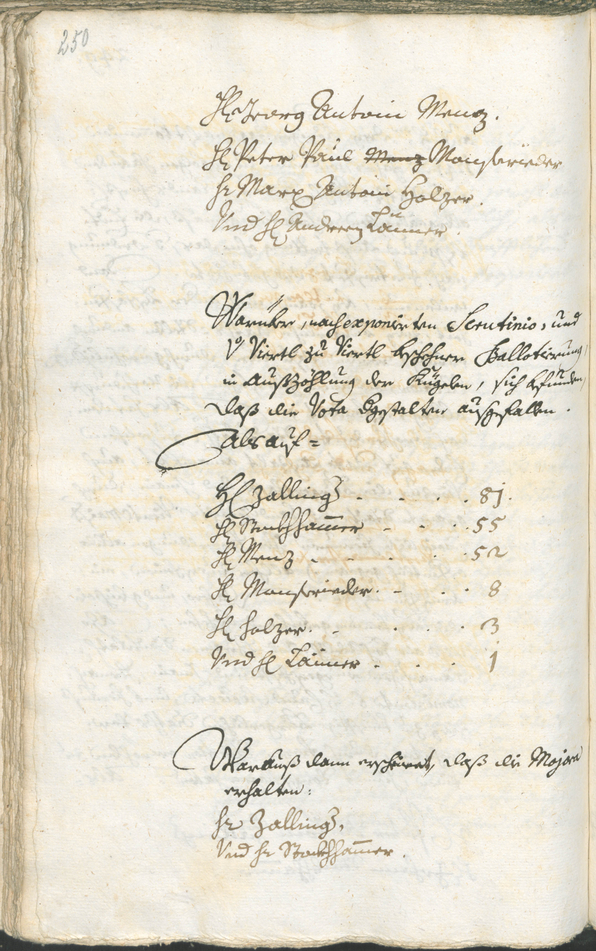 250
H: Georg Antoni Menz.
H: Peter Paul Menz Monsrieder
Hr Marx Antoni Holzer.
Und H: Andreen Länner.
Warüber, nach exponirten Scrutinio, und
V: Viertl zu Viertl beschehner Ballotierung,
in Außzöhlung der Kuglen, sich befunden,
daß die Vota dgestalten außgefallen.
Als auf =
H: Zallinger . . . . 81.
H: Stockhhamer . . . 55
H: Menz . . . . 52
H: Monsrieder . . . 8
H: Holzer . . . . 3
Und H: Länner . . . 1
Warauß dann erscheinet, daß die Majora
erhalten:
Hr Zallinger,
Und Hr Stockhhamer.